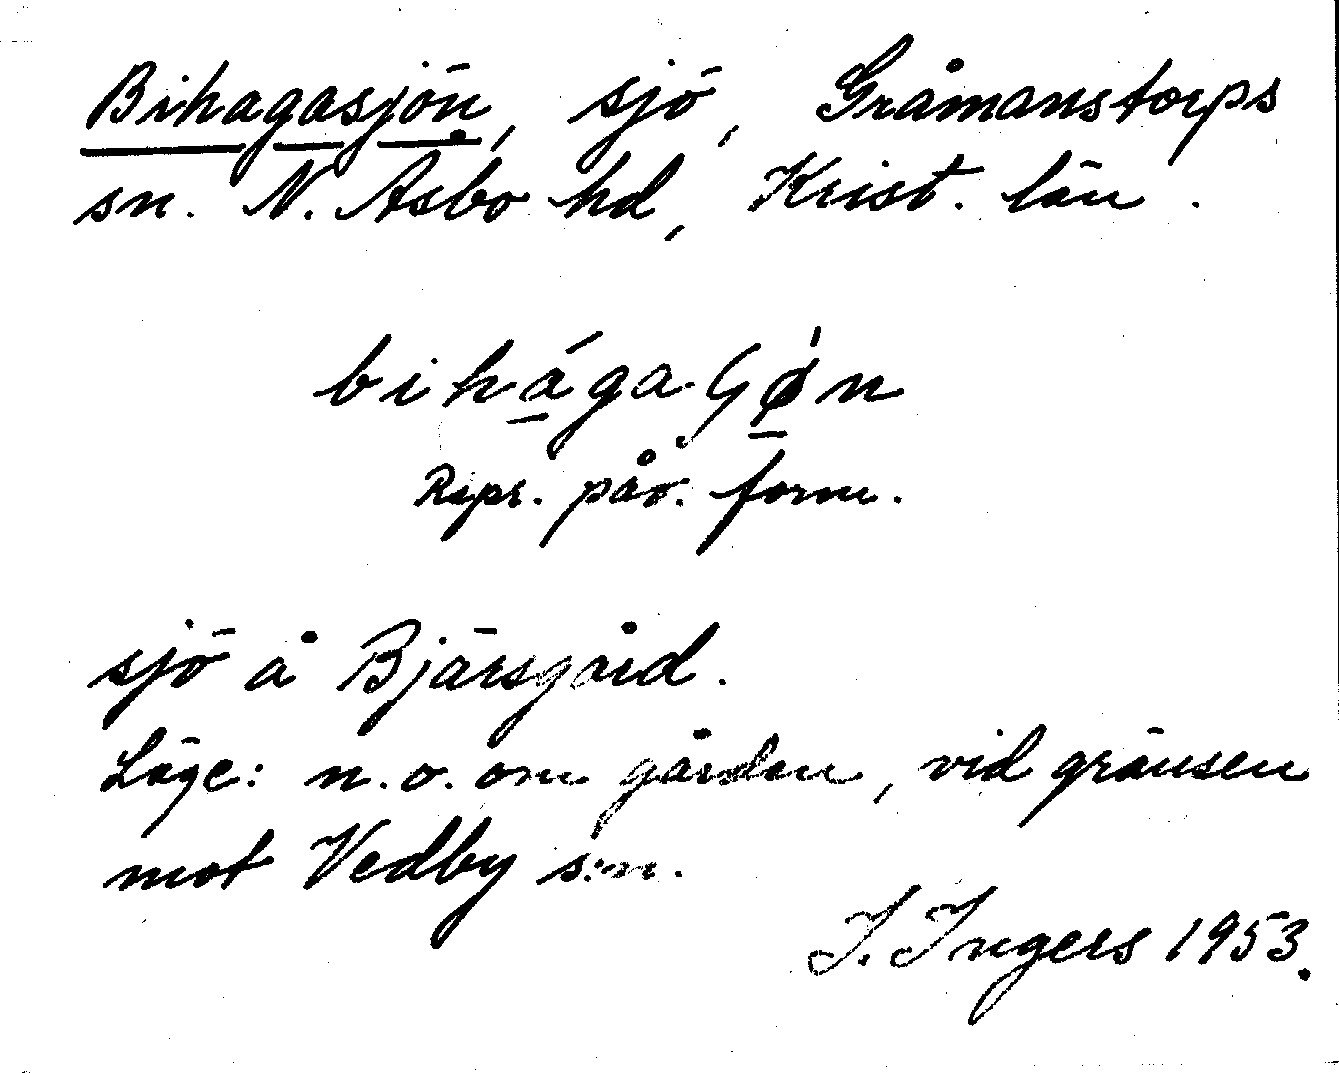 Bihagasjön, sjö, Gråmanstorps
sn. N. Åsbo hd, Krist. län.
bihágaʃǿn
Repr. påv. form.
sjö å Bjärsgård.
Läge: n.o. om gården, vid gränsen
mot Vedby s:n.
I. Ingers 1953.